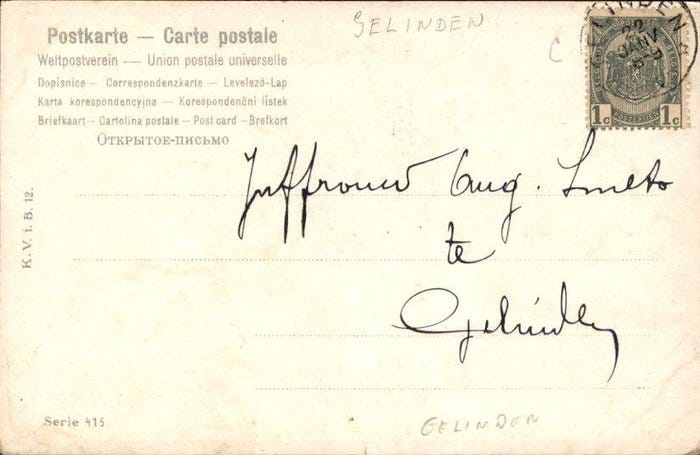 GELINDEN
Postkarte — Carte postale
Weltpostverein — Union postale universelle
Dopisnice — Correspondenzkarte — Levelező-Lap
Karta korespondencyjna — Korespondenční listek
Briefkaart — Cartolina postale — Post card — Brefkort
Открытое-письмо
C
GELINDEN
22
JANV
1c 1c
Juffrouw Aug. Smets
te
Gelinden
K. V. i. B. 12.
Serie 415
GELINDEN